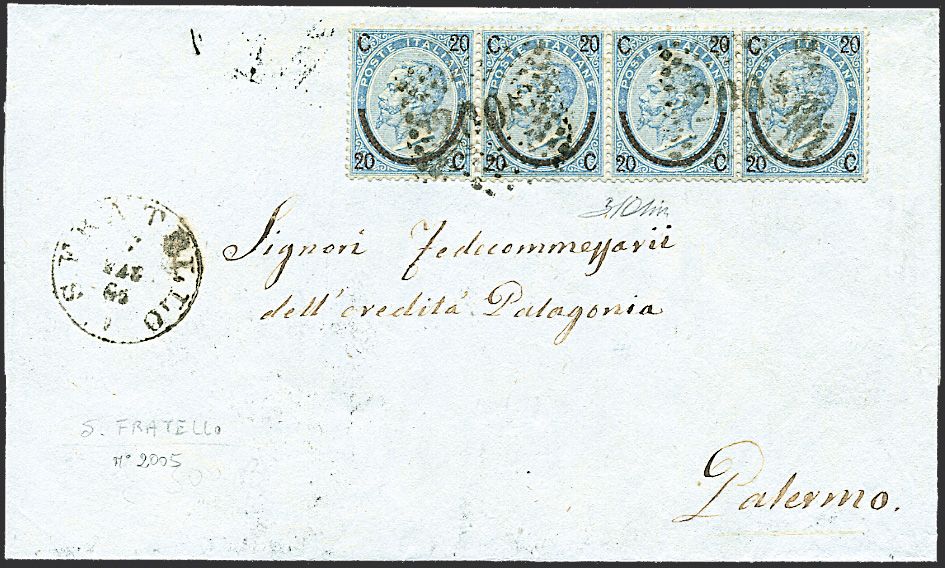 C 20 C 20 C 20 C 20
POSTE ITALIANE POSTE ITALIANE POSTE ITALIANE POSTE ITALIANE
20 C 20 C 20 C 20 C
Signori Fedecommessarii
dell' eredità Palagonia
Palermo.
S. FRATELLO
n° 2005